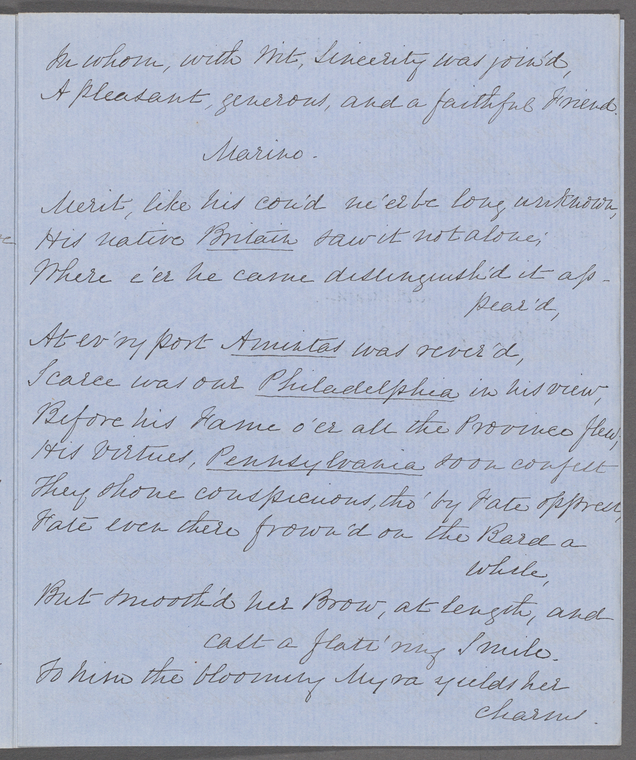 In whom, with Wit, Sincerity was join'd,
A pleasant, generous, and a faithful Friend.
Marino.
Merit, like his cou'd ne'er be long unknown,
His native Britain saw it not alone;
Where e'er he came distinguish'd it ap-
pear'd,
At ev'ry port Amintas was rever'd,
Scarce was our Philadelphia in his view,
Before his Fame o'er all the Province flew,
His Virtues, Pennsylvania soon confest
They shone conspicuous, tho' by Fate opprest,
Fate even there frown'd on the Bard a
while,
But smooth'd her Brow, at length, and
cast a flatt'ring Smile.
To him the blooming Myra yields her
charms.